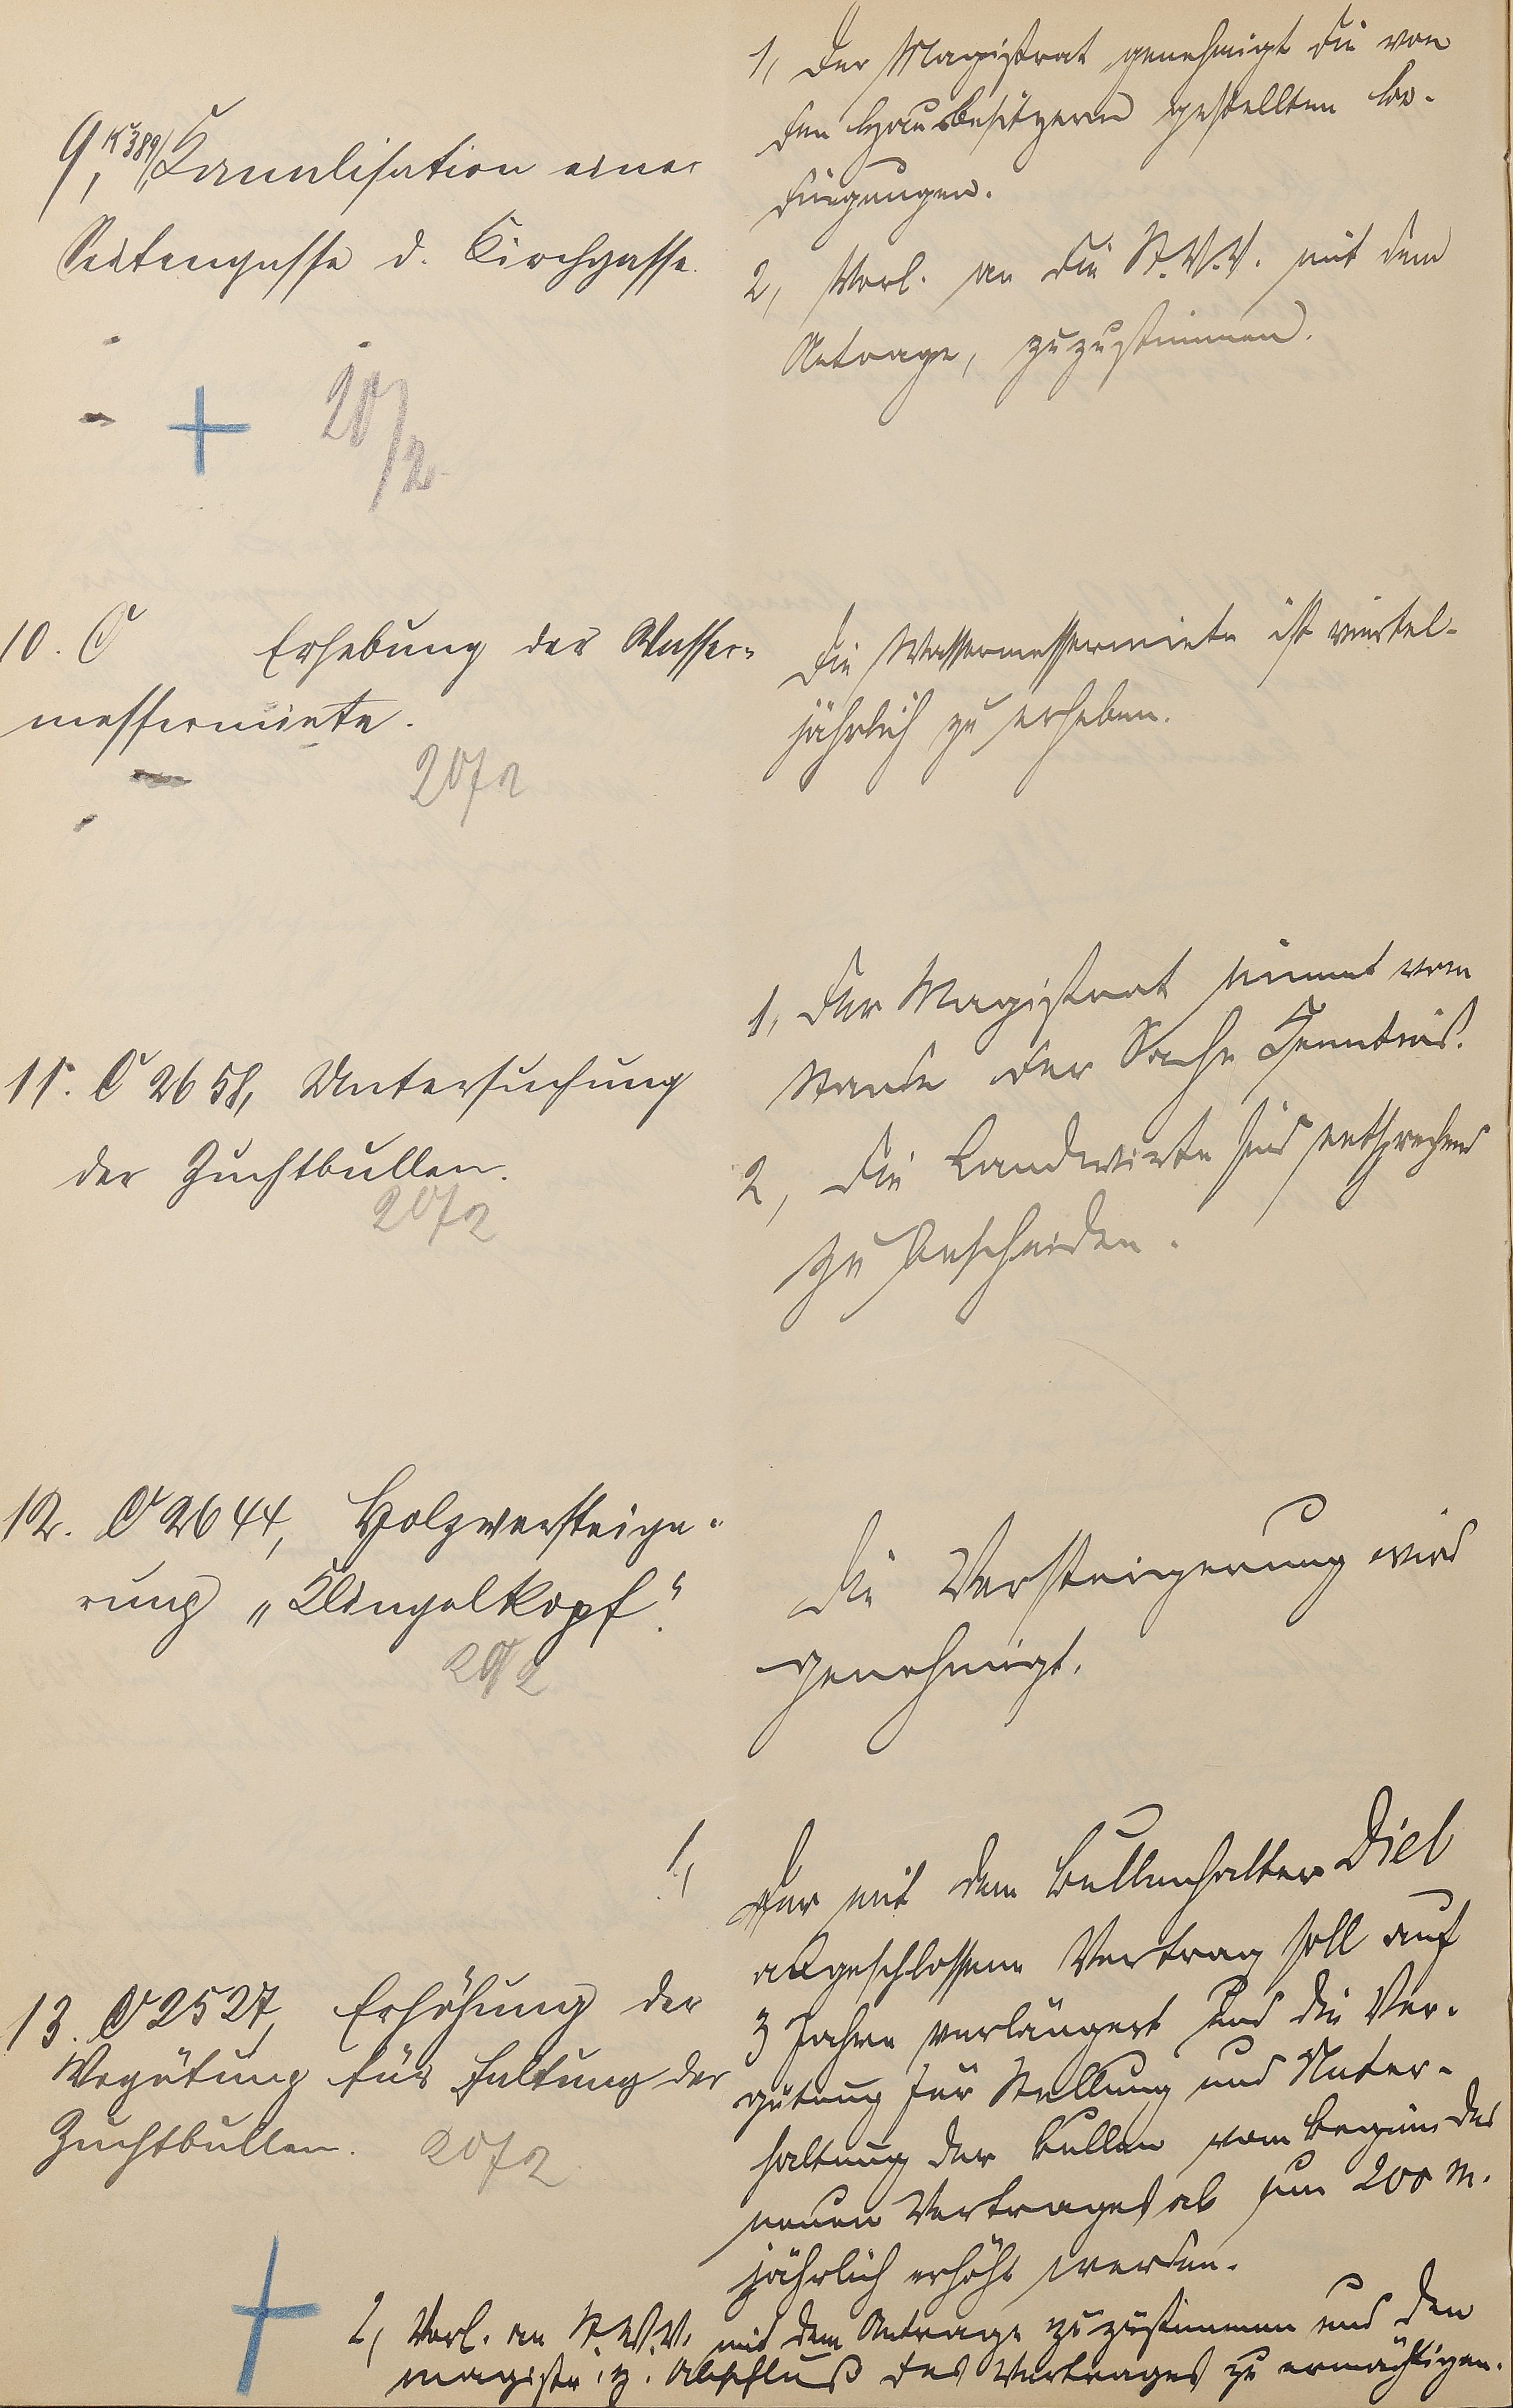 9, K 389, Kanalisation einer
Seitengasse d. Kirchgasse.
20/2
1, Der Magistrat genehmigt die von
den Hausbesitzern gestellten Be-
dingungen.
2, Vorl. an die St.V.V. mit dem
Antrage, zuzustimmen.
10. C Erhebung der Wasser-
messermiete.
20/2
Die Wassermessermiete ist viertel-
jährlich zu erheben.
11. C 2658, Untersuchung
der Zuchtbullen.
20/2
1, Der Magistrat nimmt vom
Stande der Sache Kenntnis.
2, Die Landwirte sind entsprechend
zu bescheiden.
12. C 2644, Holzversteige-
rung „Klingelkopf“.
20/2
Die Versteigerung wird
genehmigt.
13. C 2527, Erhöhung der
Vegütung für Haltung der
Zuchtbullen.
20/2
1,
Der mit dem Bullenhalter Diel
abgeschlossene Vertrag soll auf
3 Jahre verlängert und die Ver-
gütung für Stellung und Unter-
haltung der Bullen vom Beginn des
neuen Vertrages ab um 200 M.
jährlich erhöht werden.
2, Vorl. an St.V.V. mit dem Antrage zuzustimmen und den
Magistr. z. Abschluß des Vertrages zu ermächtigen.